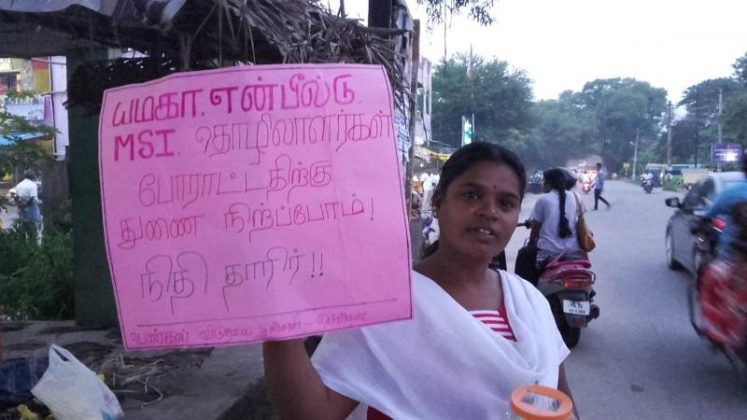 யமகா. என்பீல்டு.
MSI. தொழிலாளர்கள்
போராட்டதிற்கு
துணை நிற்ப்போம்!
நிதி தாரிர்!!
பெண்கள் விடுதலை முன்னணி - சென்னை